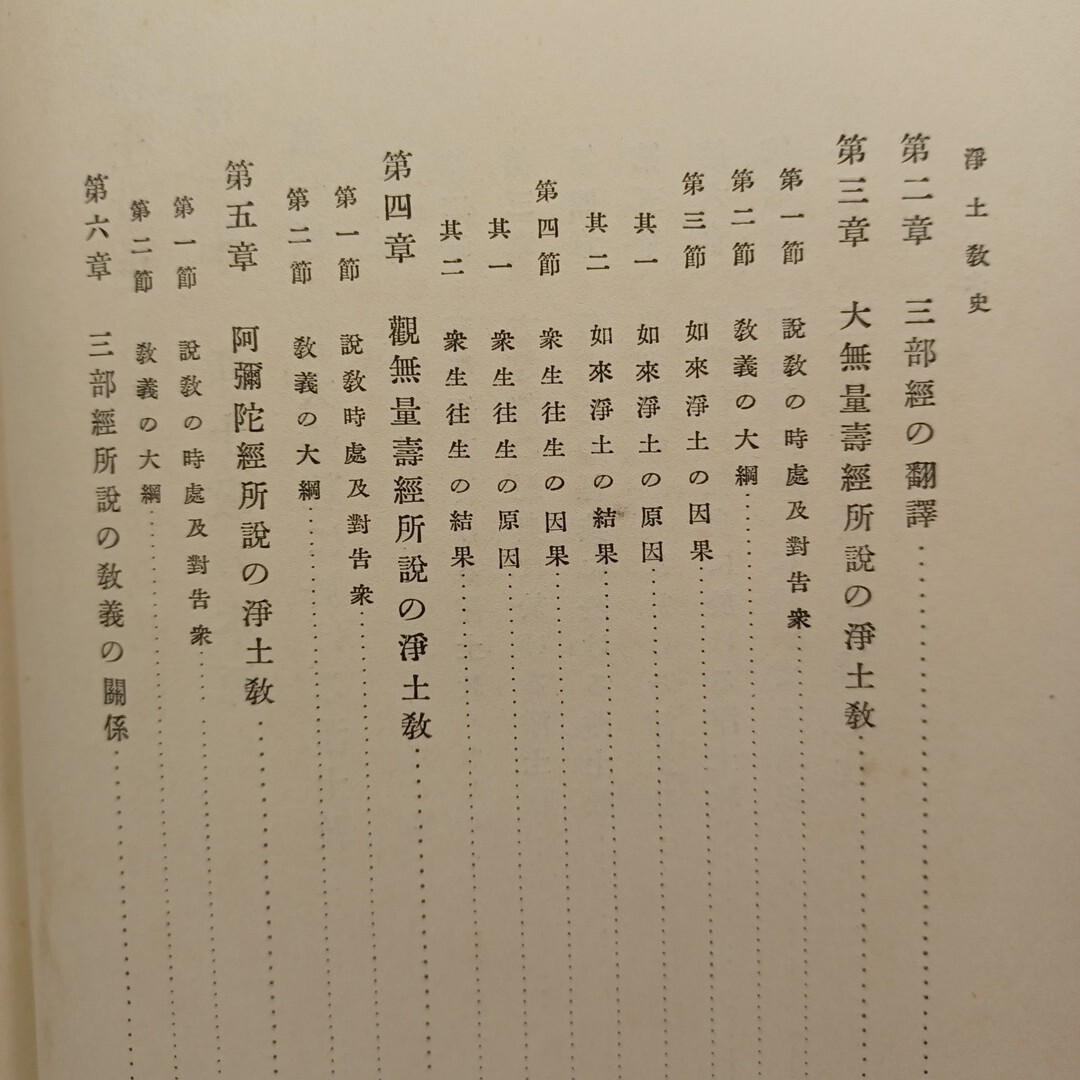 淨土敎史
第二章 三部經の翻譯
第三章 大無量壽經所說の淨土敎
第一節 說敎の時處及對告衆
第二節 敎義の大綱
第三節 如來淨土の因果
其一 如來淨土の原因
其二 如來淨土の結果
第四節 衆生往生の因果
其一 衆生往生の原因
其二 衆生往生の結果
第四章 觀無量壽經所說の淨土敎
第一節 說敎時處及對告衆
第二節 敎義の大綱
第五章 阿彌陀經所說の淨土敎
第一節 說敎の時處及對告衆
第二節 敎義の大綱
第六章 三部經所說の敎義の關係